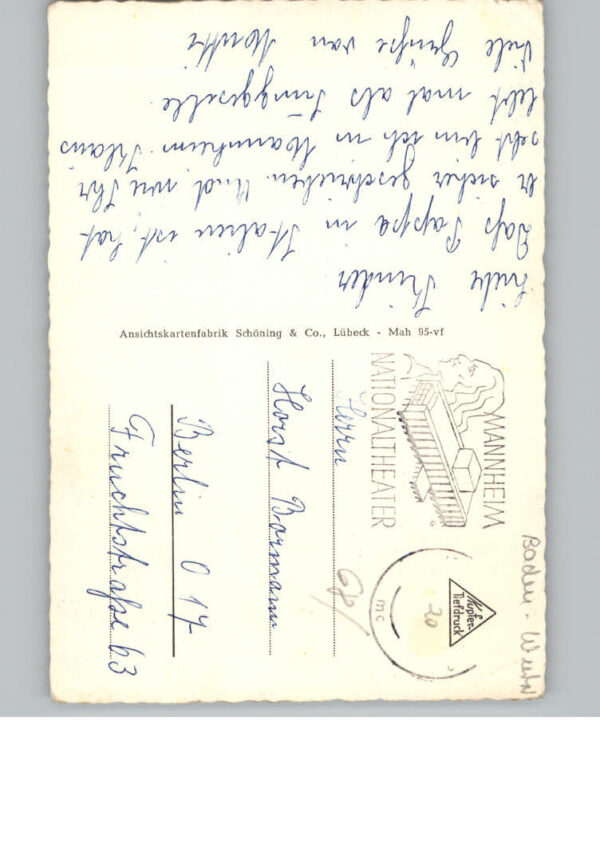 Liebe Kinder
Daß Pappa in Italien ist, hat
er sicher geschrieben. Und wie Ihr
seht bin ich in Mannheim. Klaus
lebt mal als Junggeselle.
Viele Grüße von Mutti
Ansichtskartenfabrik Schöning & Co., Lübeck - Mah 95-vf
MANNHEIM
NATIONALTHEATER
Herrn
Horst Bormann
Berlin O 17
Fruchtstraße 63
Kupfer-
Tiefdruck
20
mc
Baden -